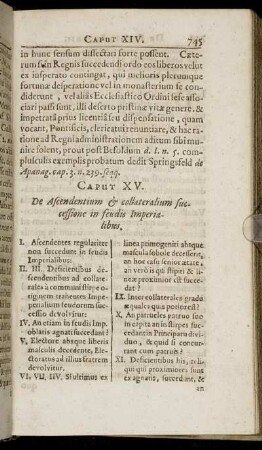 CAPUT XIV. 745
in hunc sensum dissectari forte possent. Cæte-
rum si in Regnis succedendi ordo eos liberos velut
ex insperato contingat, qui melioris plerumque
fortunæ desperatione vel in monasterium se con-
didêre, vel aliàs Ecclesiastico Ordini sese associ-
ari passi sunt, illi deserto pristinæ vitæ genere, &
impetratâ prius licentiâ seu dispensatione, quam
vocant, Pontificis, clericatui renuntiare, & hac ra-
tione ad Regni administrationem aditum sibi mu-
nire solent, prout post Besoldum d. l. n. 5. com-
pusculis exemplis probatum dedit Springsfeld de
Apanag. cap. 3. n. 239. seqq.
CAPUT XV.
De Ascendentium & collateralium suc-
cessione in feudis Imperia-
libus.
I. Ascendentes regulariter
non succedunt in feudis
Imperialibus:
II. III. Deficientibus desc-
endentibus ad collater-
ales à communi stipite o-
riginem trahentes Impe-
rialium feudorum suc-
cessio devolvitur.
IV. An etiam in feudis Imp.
oblatis agnati succedant?
V. Electore absque liberis
masculis decedente, Ele-
ctoratus ad illius fratrem
devolvitur.
VI. VII. IIV. Si ultimus ex
linea primogeniti absque
mascula sobole decesserit,
an hoc casu senior ætate,
an verò is qui stipiti & li-
neæ proximior est succe-
dat?
IX. Inter collaterales gradu
æquales quis potior est?
X. An patrueles patruo suo
in capita an in stirpes suc-
cedant in Principatu divi-
duo, & quid si concur-
rant cum patruis?
XI. Deficientibus his, reli-
qui qui proximiores sunt
ex agnatis, succedunt, &
an